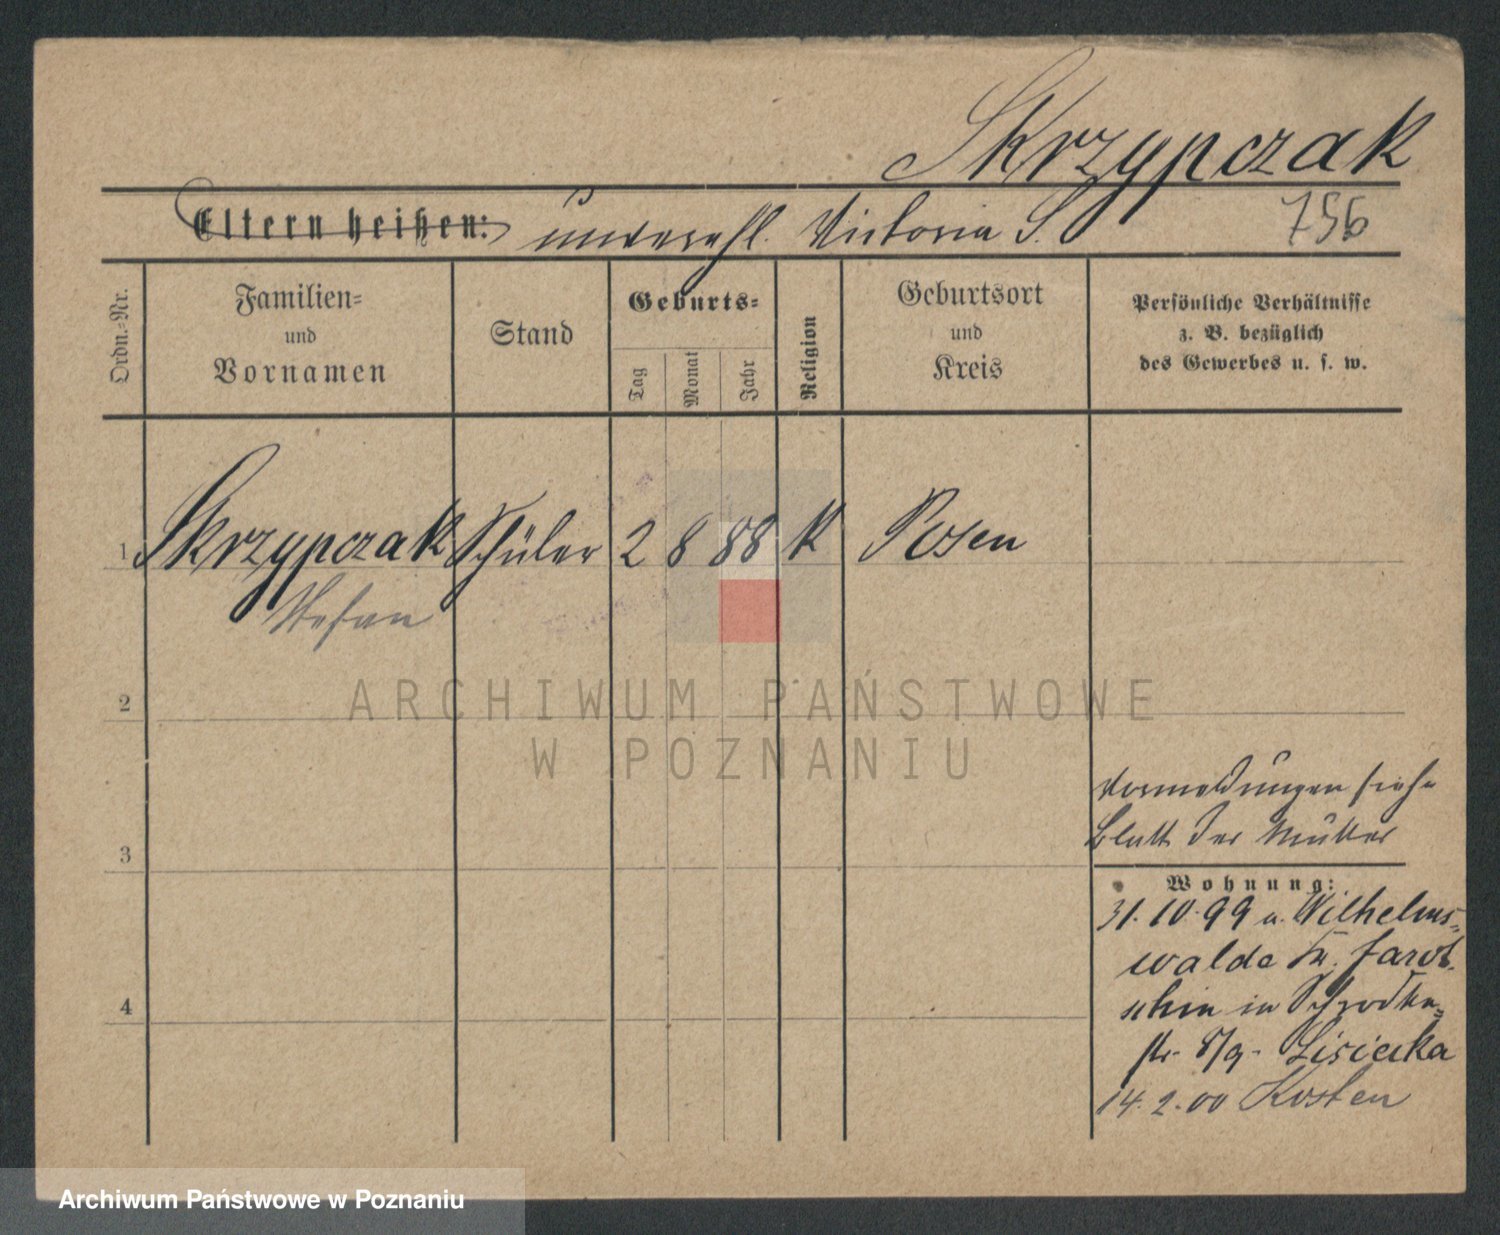 Skrzypczak
Eltern heißen: unverehl. Victoria S.
756
Ordn.-Nr.
Familien-
und
Vornamen
Stand
Geburts-
Tag
Monat
Jahr
Religion
Geburtsort
und
Kreis
Persönliche Verhältnisse
z. B. bezüglich
des Gewerbes u. s. w.
1 Skrzypczak Schüler 2 8 88 K Posen
Stefan
ARCHIWUM PAŃSTWOWE
W POZNANIU
2
Vormeldungen siehe
Blatt der Mutter
3
Wohnung:
31.10.99 a. Wilhelms-
walde Kr. Jarot-
schin in Schrodka-
str. 8/9. Lisiecka
14.2.00 Kosten
4
Archiwum Państwowe w Poznaniu